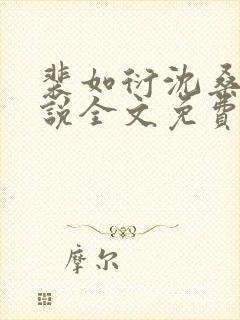 裴如衍沈桑
说全文免费
摩尔